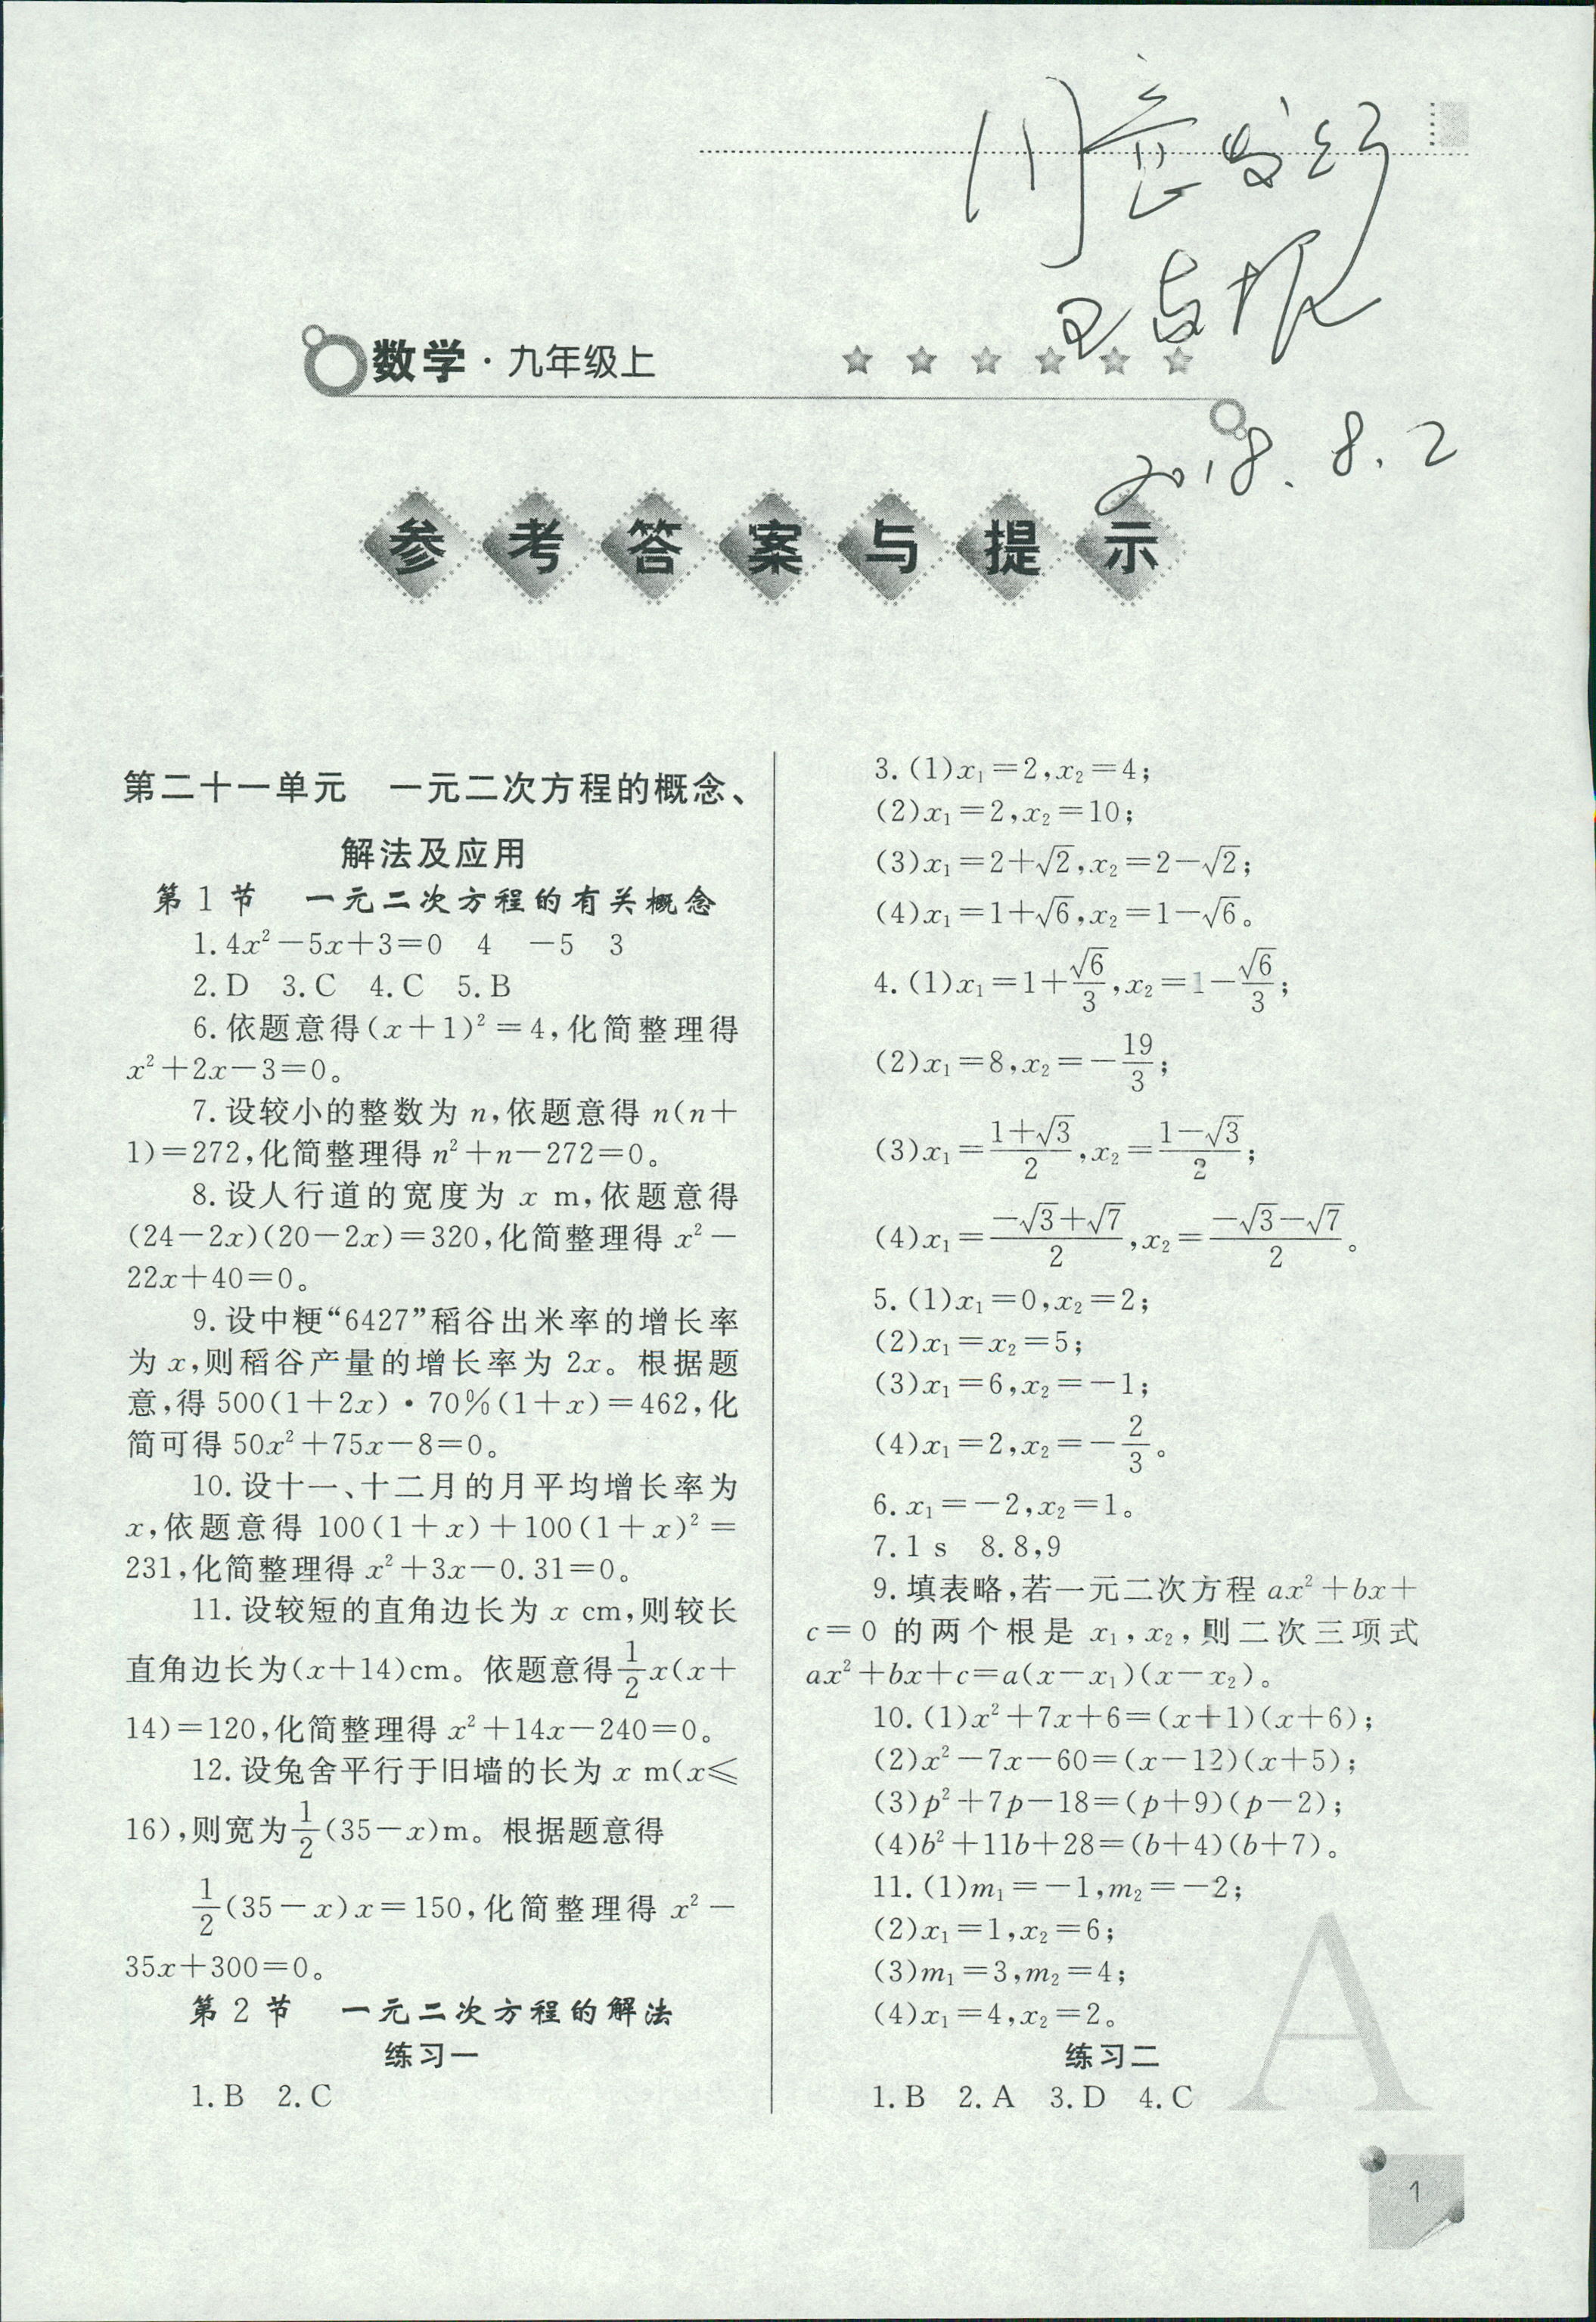 同意发行
2018.8.2
数学·九年级上
参考答案与提示
第二十一单元 一元二次方程的概念、
解法及应用
第1节 一元二次方程的有关概念
1.4x²-5x+3=0 4 -5 3
2.D 3.C 4.C 5.B
6.依题意得(x+1)²=4,化简整理得
x²+2x-3=0。
7.设较小的整数为n,依题意得n(n+
1)=272,化简整理得n²+n-272=0。
8.设人行道的宽度为x m,依题意得
(24-2x)(20-2x)=320,化简整理得x²-
22x+40=0。
9.设中粳“6427”稻谷出米率的增长率
为x,则稻谷产量的增长率为2x。根据题
意,得500(1+2x)·70%(1+x)=462,化
简可得50x²+75x-8=0。
10.设十一、十二月的月平均增长率为
x,依题意得100(1+x)+100(1+x)²=
231,化简整理得x²+3x-0.31=0。
11.设较短的直角边长为x cm,则较长
直角边长为(x+14)cm。依题意得1/2x(x+
14)=120,化简整理得x²+14x-240=0。
12.设兔舍平行于旧墙的长为x m(x≤
16),则宽为1/2(35-x)m。根据题意得
1/2(35-x)x=150,化简整理得x²-
35x+300=0。
第2节 一元二次方程的解法
练习一
1.B 2.C
3.(1)x₁=2,x₂=4;
(2)x₁=2,x₂=10;
(3)x₁=2+√2,x₂=2-√2;
(4)x₁=1+√6,x₂=1-√6。
4.(1)x₁=1+√6/3,x₂=1-√6/3;
(2)x₁=8,x₂=-19/3;
(3)x₁=(1+√3)/2,x₂=(1-√3)/2;
(4)x₁=(-√3+√7)/2,x₂=(-√3-√7)/2。
5.(1)x₁=0,x₂=2;
(2)x₁=x₂=5;
(3)x₁=6,x₂=-1;
(4)x₁=2,x₂=-2/3。
6.x₁=-2,x₂=1。
7.1 s 8.8,9
9.填表略,若一元二次方程ax²+bx+
c=0的两个根是x₁,x₂,则二次三项式
ax²+bx+c=a(x-x₁)(x-x₂)。
10.(1)x²+7x+6=(x+1)(x+6);
(2)x²-7x-60=(x-12)(x+5);
(3)p²+7p-18=(p+9)(p-2);
(4)b²+11b+28=(b+4)(b+7)。
11.(1)m₁=-1,m₂=-2;
(2)x₁=1,x₂=6;
(3)m₁=3,m₂=4;
(4)x₁=4,x₂=2。
练习二
1.B 2.A 3.D 4.C
A
1